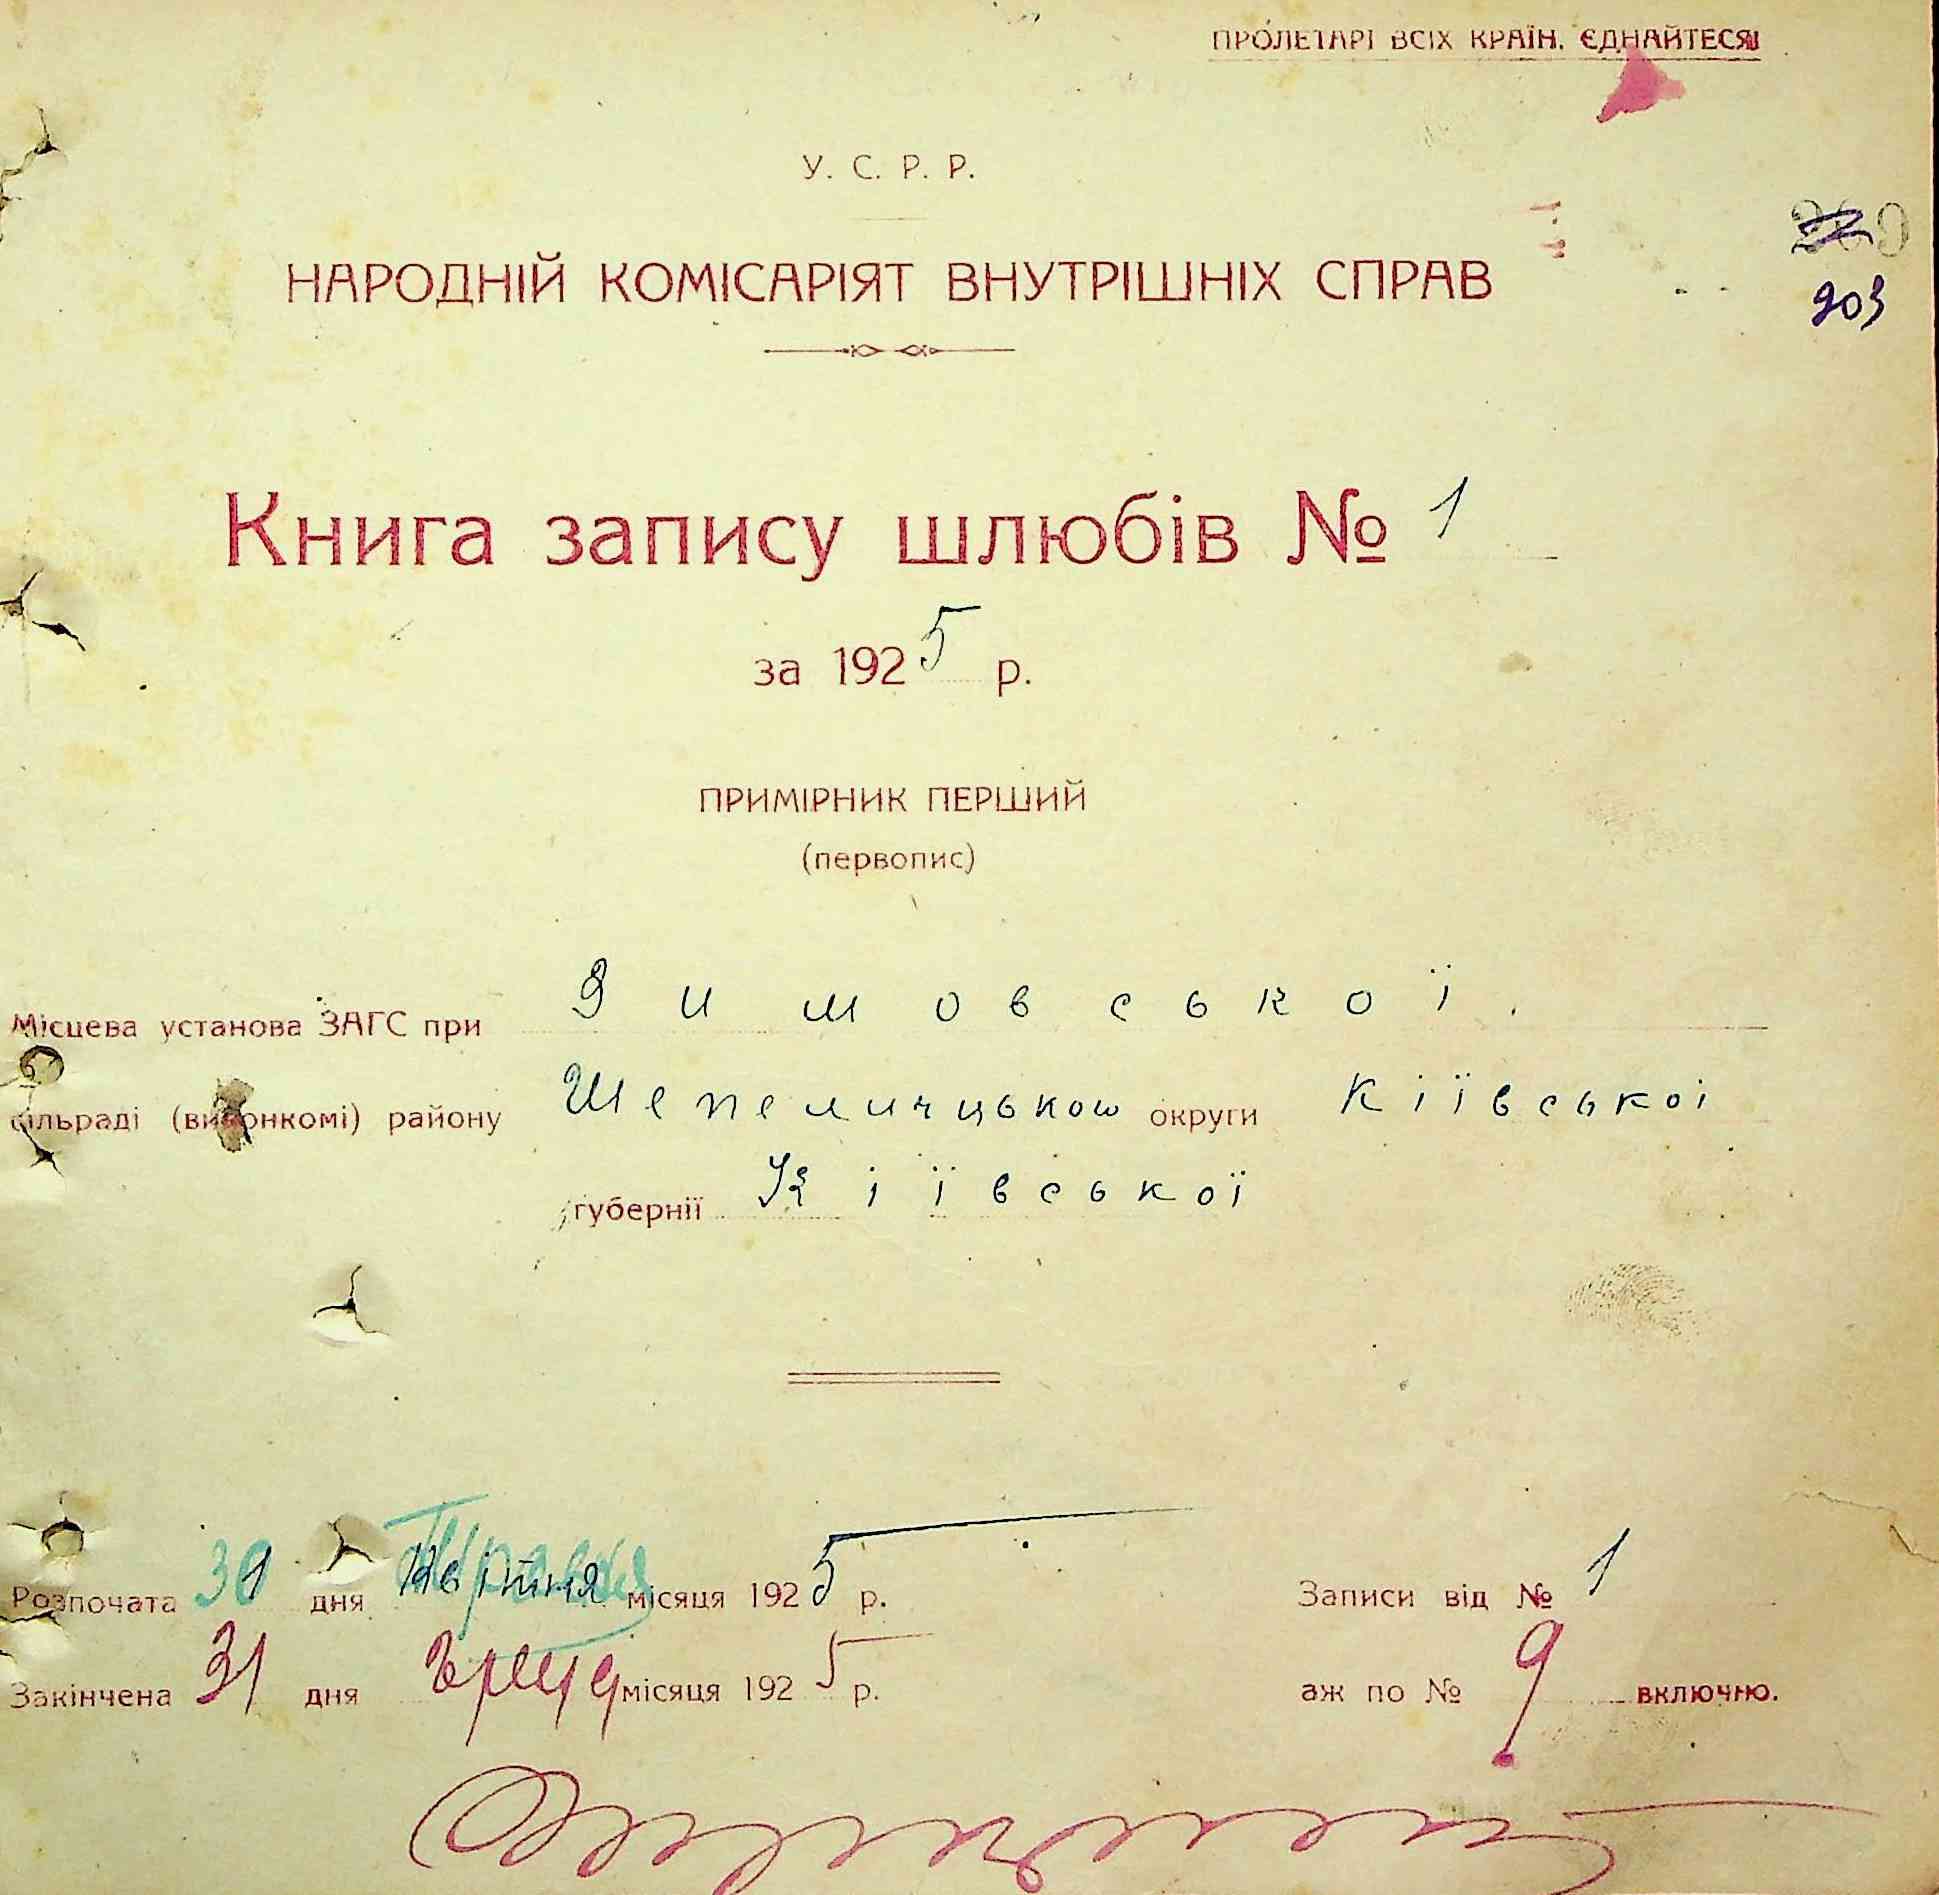 ПРОЛЕТАРІ ВСІХ КРАЇН, ЄДНАЙТЕСЯ!
У. С. Р. Р.
203
НАРОДНІЙ КОМІСАРІЯТ ВНУТРІШНІХ СПРАВ
Книга запису шлюбів № 1
за 1925 р.
ПРИМІРНИК ПЕРШИЙ
(первопис)
Місцева установа ЗАГС при Зимовської
сільраді (виконкомі) району Шепеличцькош округи Кіївської
губернії Кіївської
Розпочата дня Квітня місяця 1925 р. Записи від № 1
Закінчена 31 дня місяця 1925 р. аж по № 9 включно.